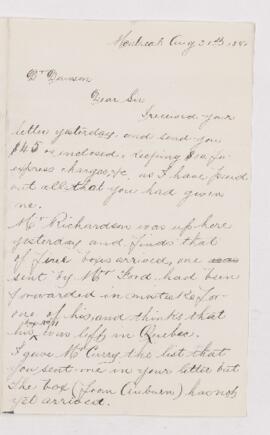 Montreal Aug 31st 188
Dr Dawson
Dear Sir
I received your
letter yesterday, and send you
$45 as enclosed, keeping $ for
express charges, &c, as I have paid
out all that you had given
me.
Mr Richardson was up here
yesterday and finds that
of four boxes arrived, one was
sent by Mr had been
forwarded in mistake for
one of his, and thinks that
his was left in Quebec.
I gave Mr Curry the list that
you sent me in your letter but
the box (from Auburn) has not
yet arrived.